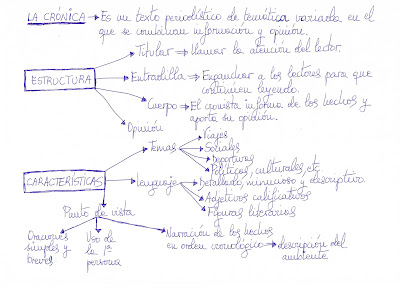 LA CRÓNICA → Es un texto periodístico de temática variada en el
que se combinan información y opinión.
Titular → Llamar la atención del lector.
ESTRUCTURA
Entradilla → Enganchar a los lectores para que
continúen leyendo.
Cuerpo → El cronista informa de los hechos y
aporta su opinión.
Opinión
Temas
Viajes
Sociales
Deportivas
Políticos, culturales, etc
CARACTERÍSTICAS
Lenguaje
Detallado, minucioso y descriptivo
Adjetivos calificativos
Figuras literarias
Punto de vista
Oraciones
simples y
breves
Uso de
la 1ª
persona
Narración de los hechos
en orden cronológico → descripción del
ambiente